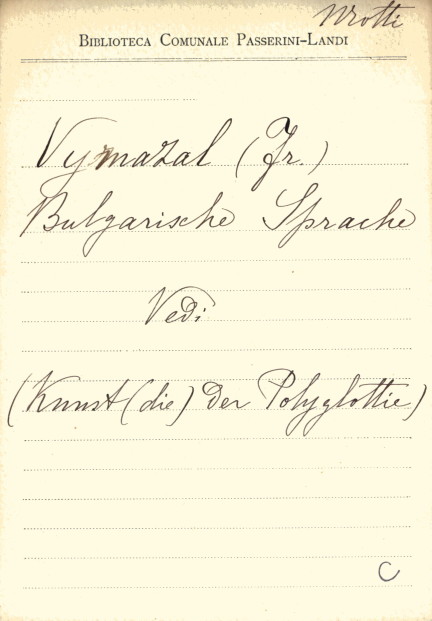 Mrotti
BIBLIOTECA COMUNALE PASSERINI-LANDI
Vymazal (Fr.)
Bulgarische Sprache
Vedi
(Kunst (die) der Polyglottie)
C